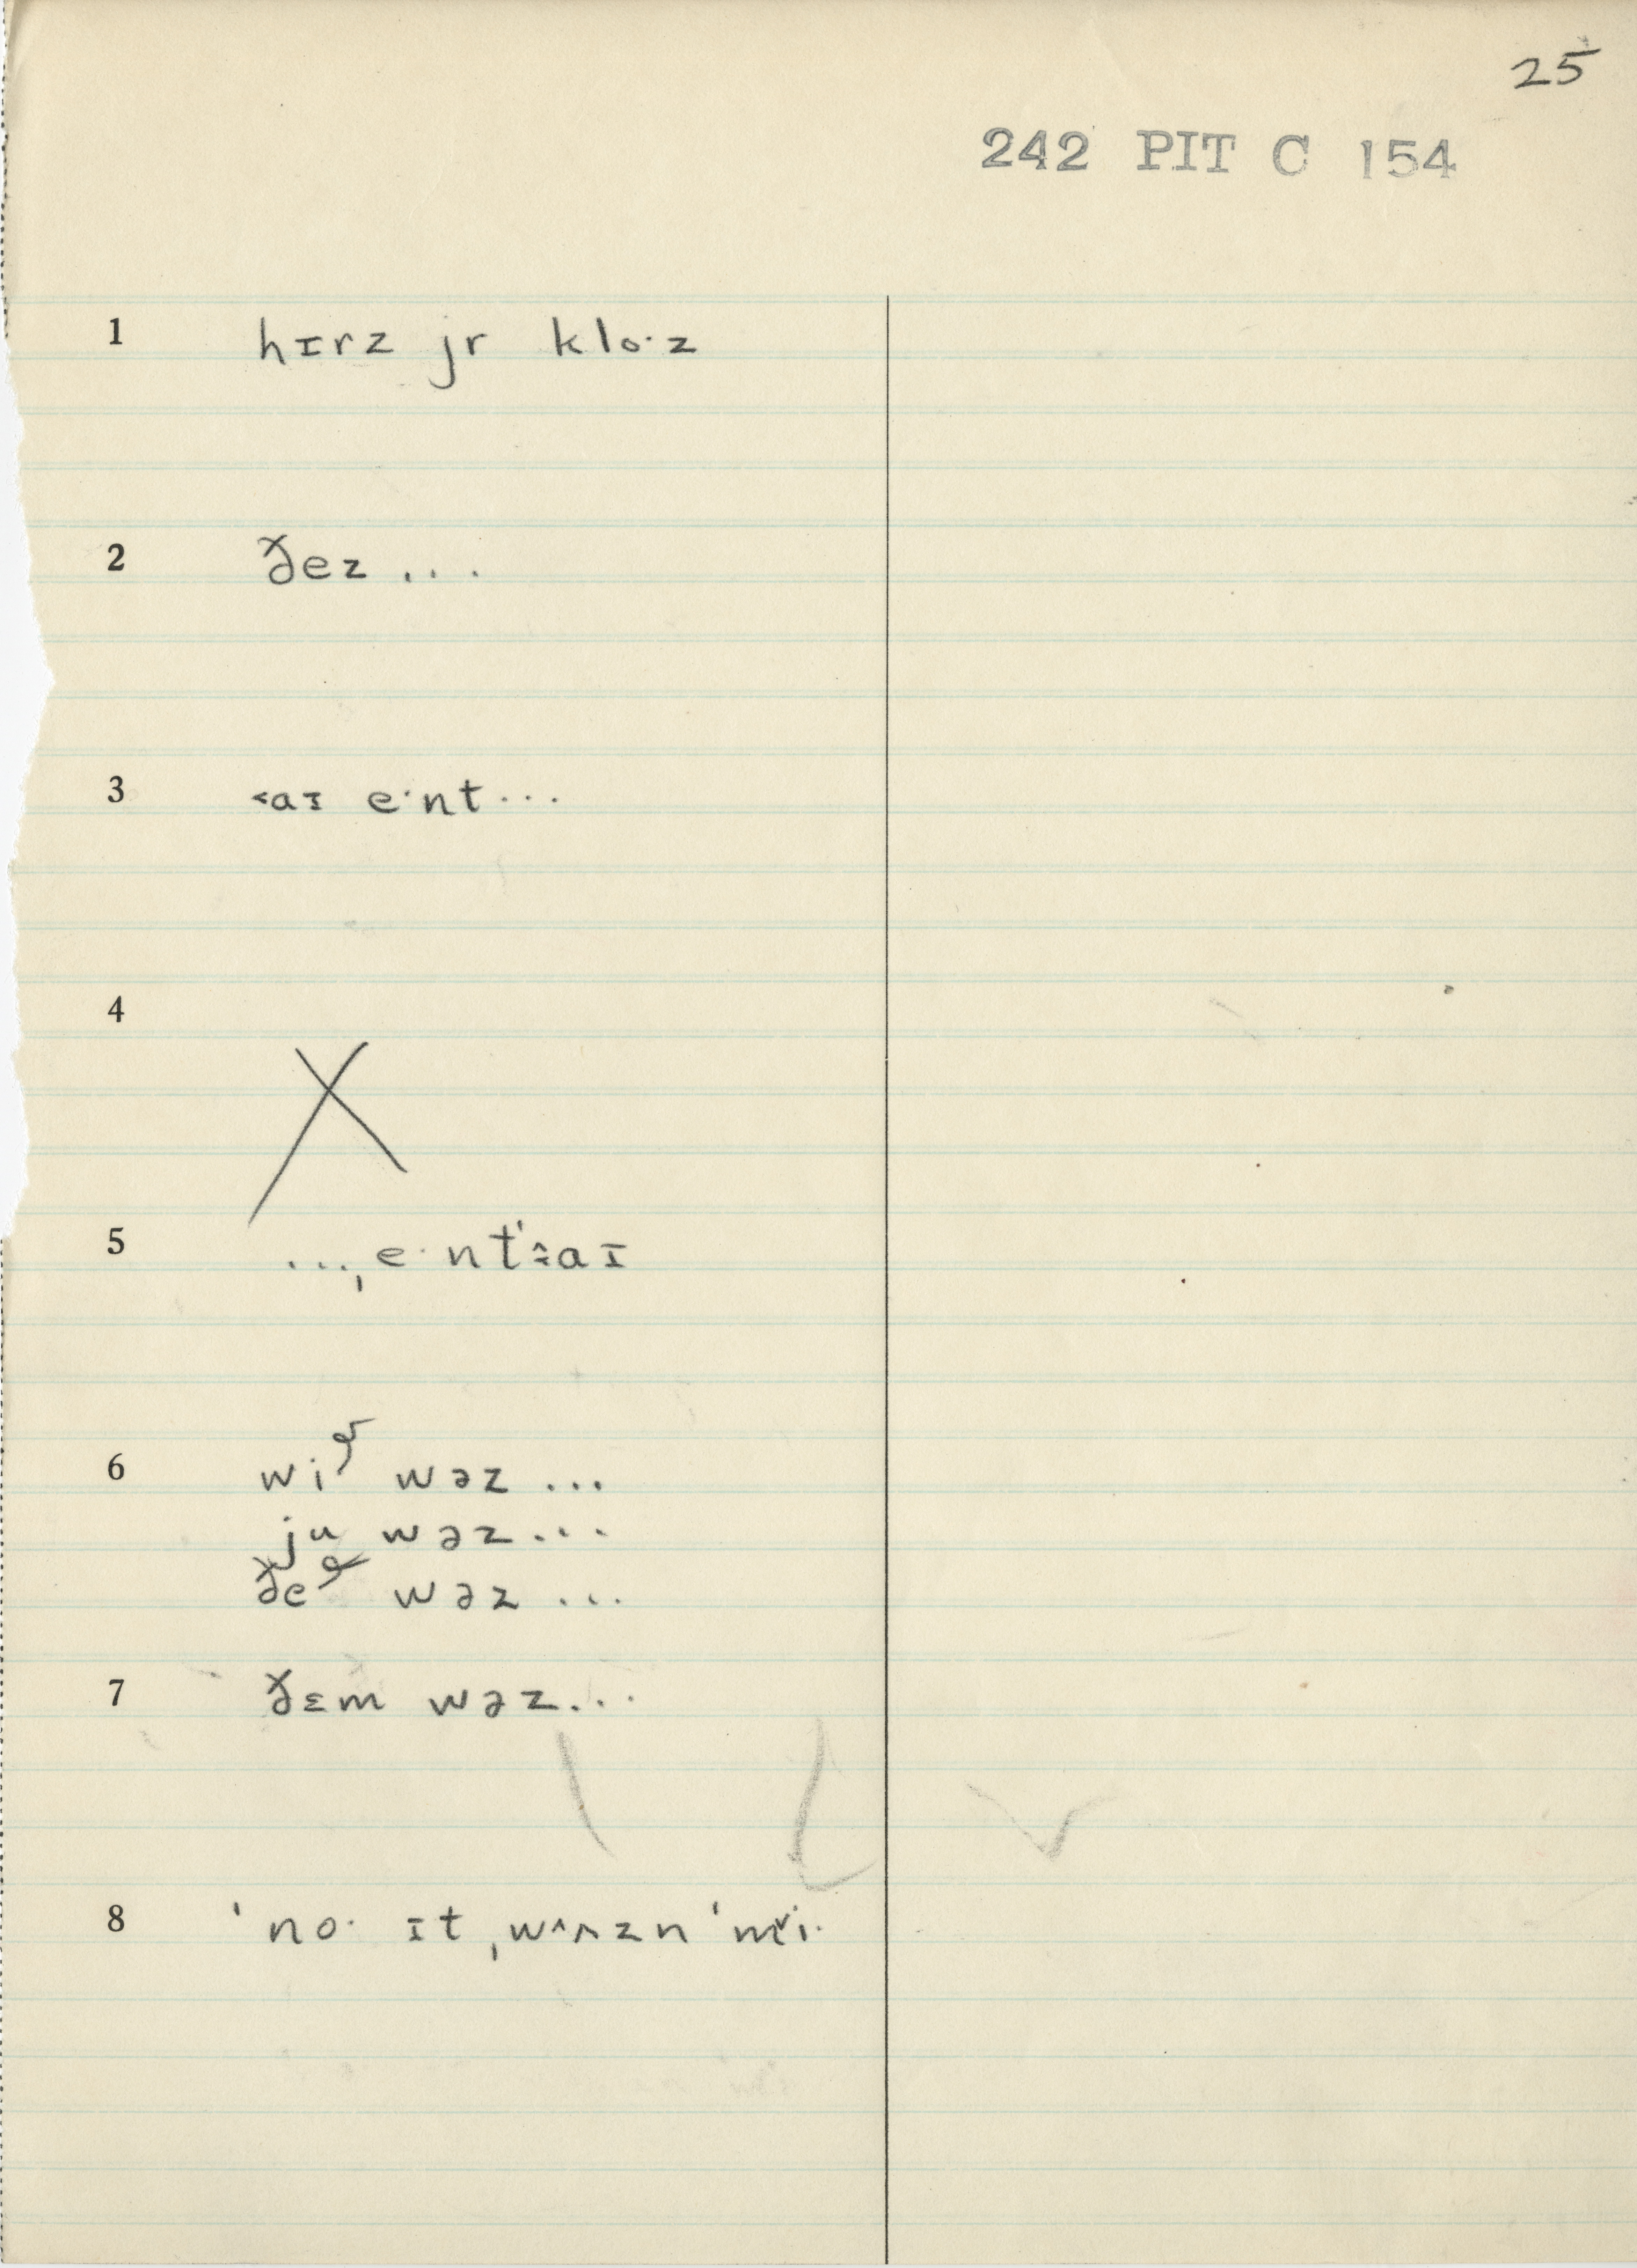 25
242 PIT C 154
1 hɪrz jr klo·z
2 ðez ...
3 ˂aɪ e·nt ...
4 X
5 ...ˌe·nt aɪ
6 wi wəz ...
ju wəz ...
ðe wəz ...
7 ðɛm wəz ...
8 ˈno· ɪt ˌwʌzn ˈmi·